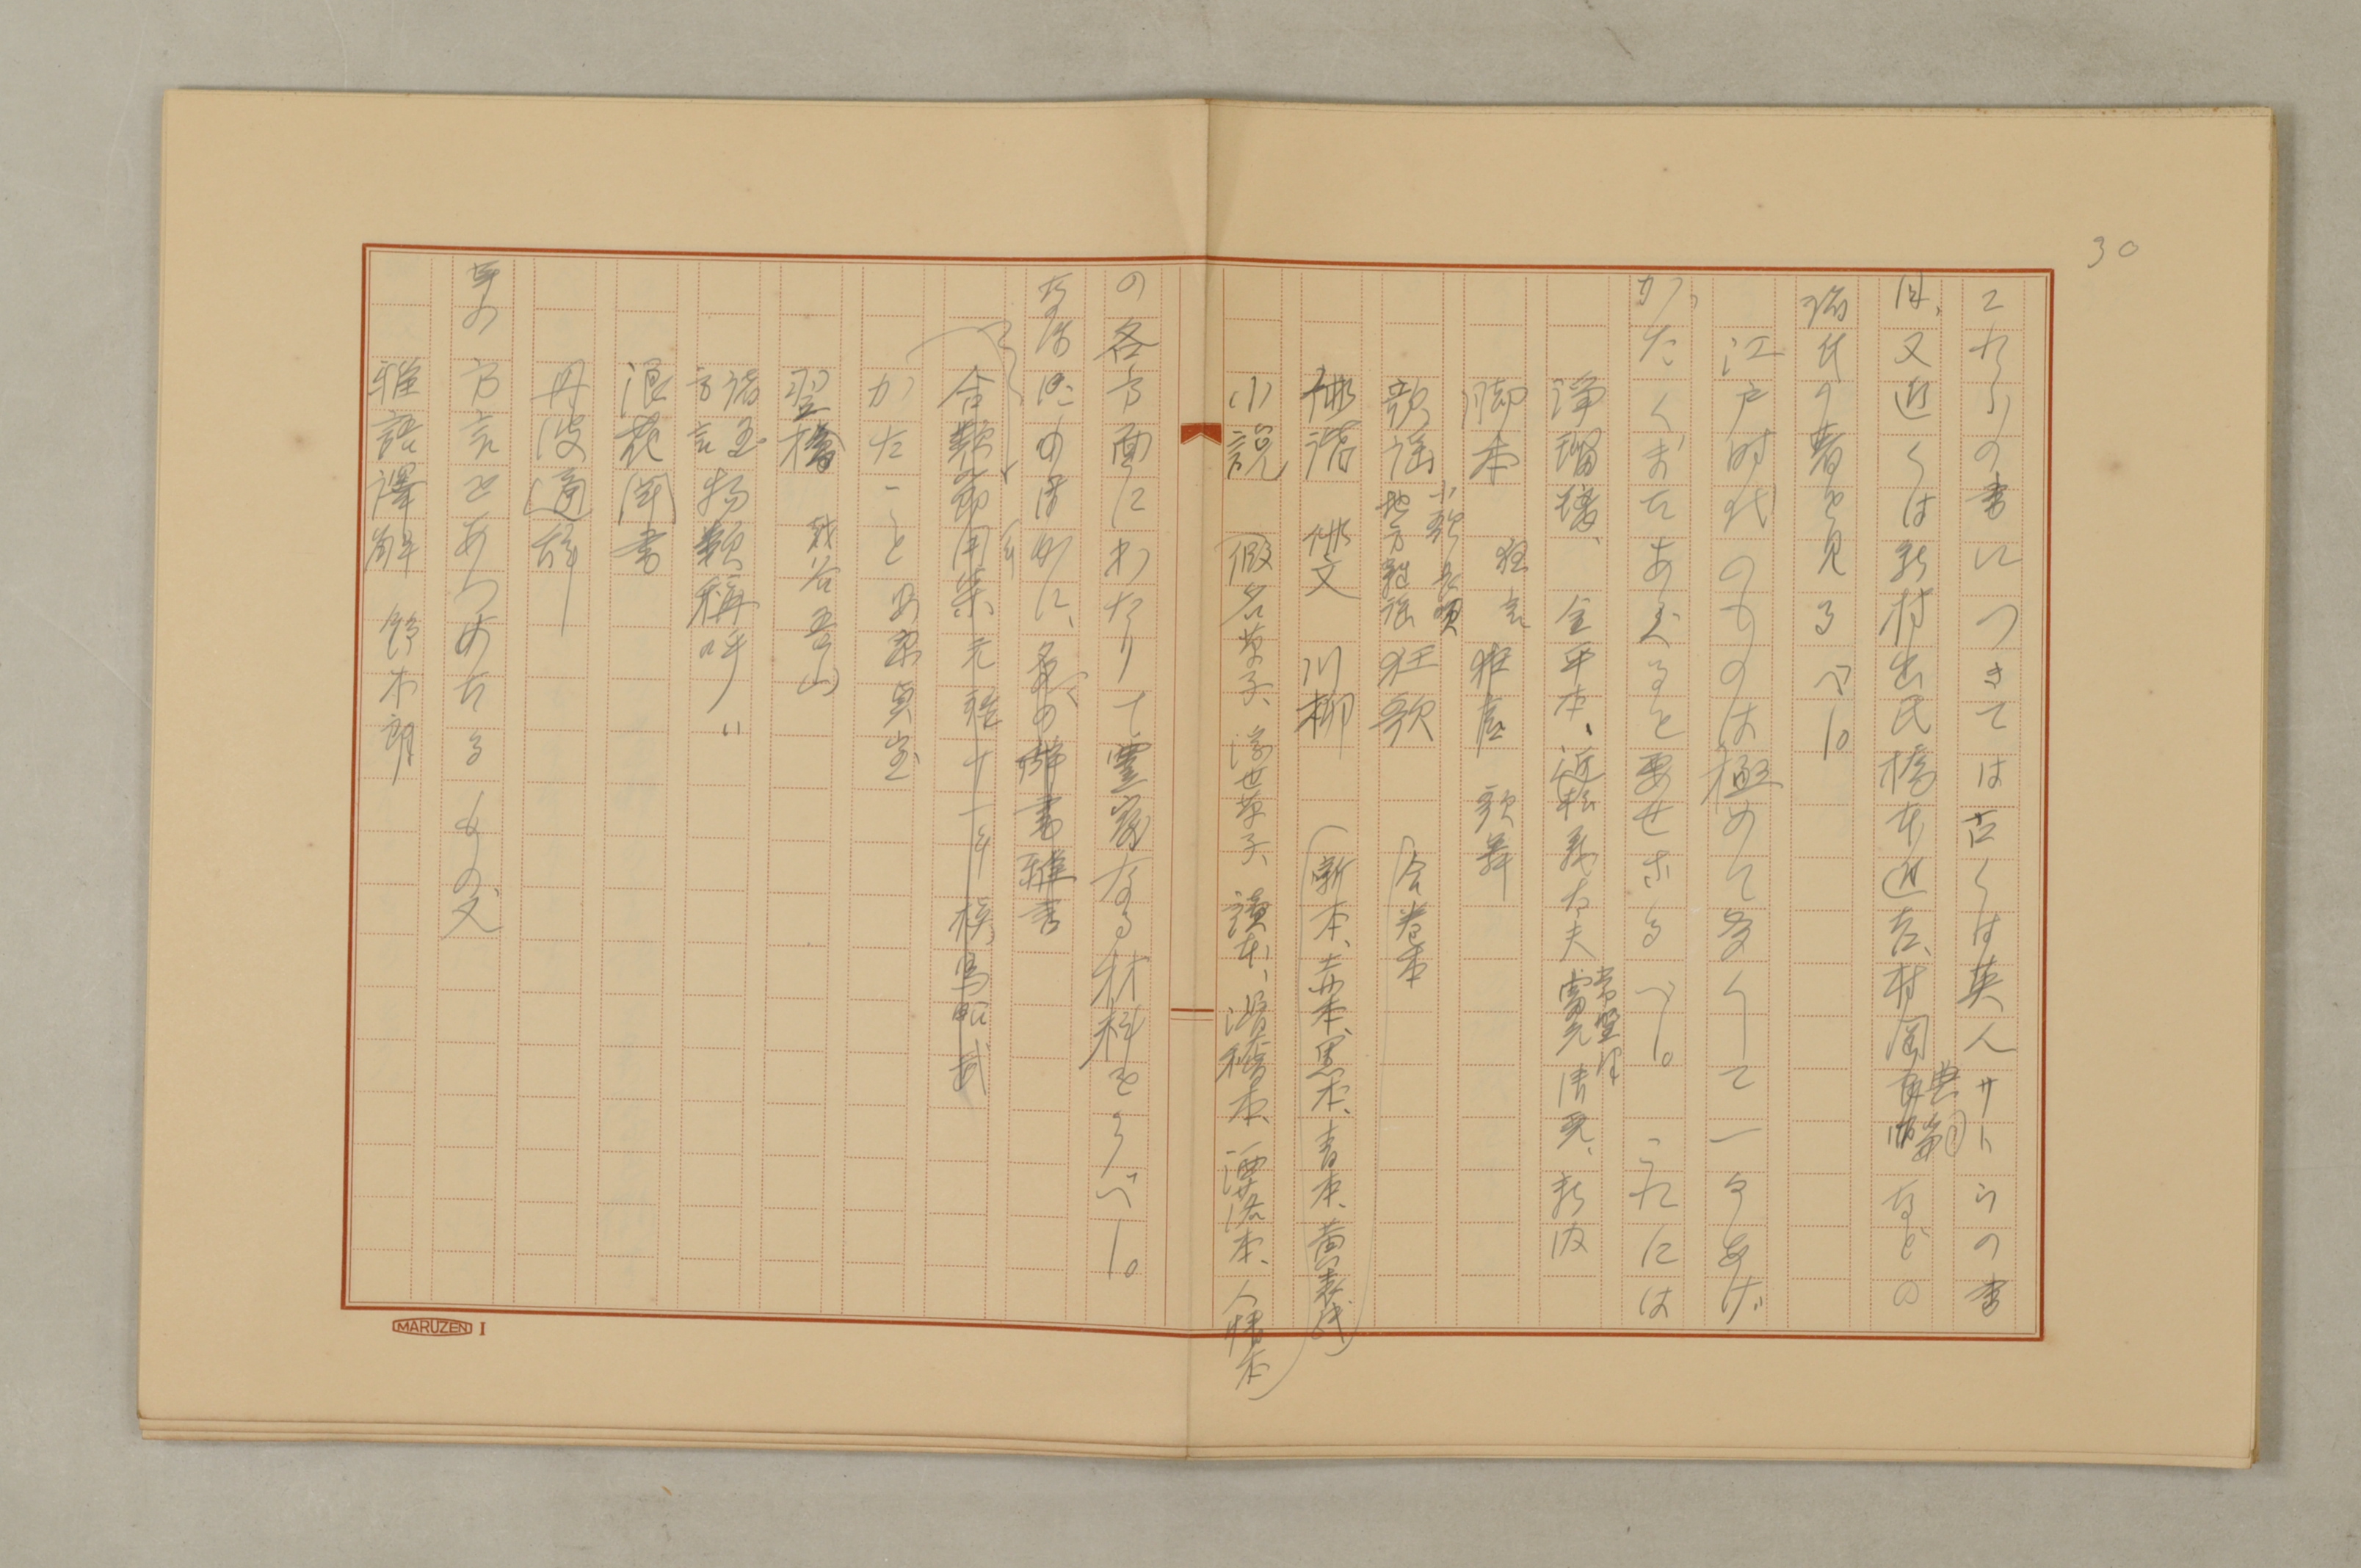 30
これらの書につきては古くは英人サトウの書
目、又近くは新村出氏橋本進吉、村岡典嗣などの
諸氏の著を見るべし。
江戸時代のものは極めて多くして一々あげ
がたくまたあぐるを要せざるべし。これには
浄瑠璃、金平本、近松義太夫 常磐津 富本 清元、新内
脚本 狂言 歌舞
歌謡 小歌 長唄 地方雑謡 狂歌 合巻本
俳諧 俳文 川柳 (噺本、赤本、黒本、青本、黄表紙)
小説 假名草子、浮世草子、讀本、滑稽本、洒落本、人情本
の各方面にわたりて豊富なる材料をうべし。
なほ このほかに、多くの辞書 雑書
合類節用集 元禄十一年 槙島昭武
かたこと 安原貞室
翌檜 越谷吾山
諸国方言 物類稱呼 〃
浪花聞書
丹波通辞
等の方言をあつめたるもの又
雅語譯解 鈴木朗
MARUZEN I